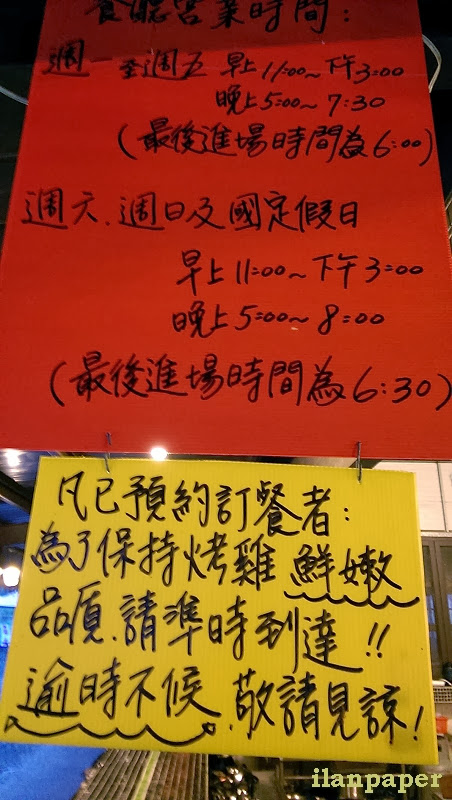 餐廳營業時間:
週一至週五 早上11:00~下午3:00
晚上5:00~7:30
(最後進場時間為6:00)
週六、週日及國定假日
早上11:00~下午3:00
晚上5:00~8:00
(最後進場時間為6:30)
凡已預約訂餐者:
為了保持烤雞鮮嫩
品質、請準時到達!!
逾時不候、敬請見諒!
ilanpaper